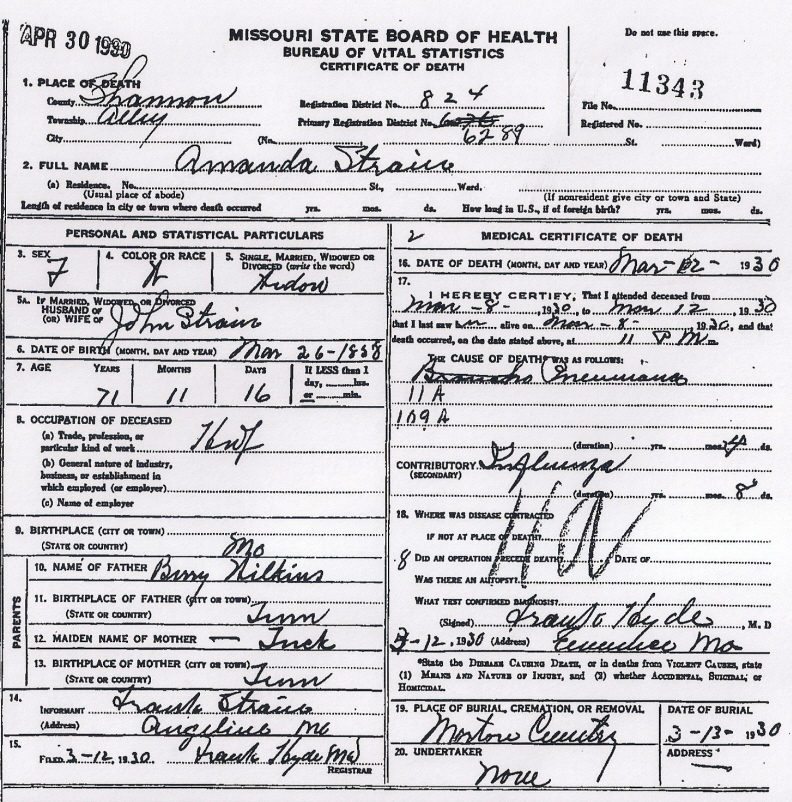 APR 30 1930
MISSOURI STATE BOARD OF HEALTH
BUREAU OF VITAL STATISTICS
CERTIFICATE OF DEATH
Do not use this space.
11343
1. PLACE OF DEATH
County Shannon
Township Alley
City
(No.
St.
Ward)
Registration District No. 824
Primary Registration District No. 6289
File No.
Registered No.
2. FULL NAME Amanda Strain
(a) Residence. No. St., Ward.
(Usual place of abode)
(If nonresident give city or town and State)
Length of residence in city or town where death occurred yrs. mos. ds. How long in U.S., if of foreign birth? yrs. mos. ds.
PERSONAL AND STATISTICAL PARTICULARS
3. SEX
F
4. COLOR OR RACE
W
5. SINGLE, MARRIED, WIDOWED OR
DIVORCED (write the word)
Widow
5A. IF MARRIED, WIDOWED, OR DIVORCED
HUSBAND OF
(OR) WIFE OF John Strain
6. DATE OF BIRTH (MONTH, DAY AND YEAR) Mar 26-1858
7. AGE YEARS MONTHS DAYS If LESS than 1
day, hrs.
or min.
71 11 16
8. OCCUPATION OF DECEASED
(a) Trade, profession, or
particular kind of work Hwf
(b) General nature of industry,
business, or establishment in
which employed (or employer)
(c) Name of employer
9. BIRTHPLACE (CITY OR TOWN)
(STATE OR COUNTRY) Mo
PARENTS
10. NAME OF FATHER Berry Wilkins
11. BIRTHPLACE OF FATHER (CITY OR TOWN)
(STATE OR COUNTRY) Tenn
12. MAIDEN NAME OF MOTHER — Tuck
13. BIRTHPLACE OF MOTHER (CITY OR TOWN)
(STATE OR COUNTRY) Tenn
14.
INFORMANT Frank Strain
(Address) Angeline Mo
15.
FILED 3-12, 1930 Frank Hyde MD
REGISTRAR
2 MEDICAL CERTIFICATE OF DEATH
16. DATE OF DEATH (MONTH, DAY AND YEAR) Mar-12- 1930
17.
I HEREBY CERTIFY, That I attended deceased from
Mar-8-, 1930, to Mar 12, 1930
that I last saw her alive on Mar-8-, 1930, and that
death occurred, on the date stated above, at 11 P M m.
THE CAUSE OF DEATH WAS AS FOLLOWS:
Broncho Pneumonia
11A
109A
(duration) yrs. mos. 4 ds.
CONTRIBUTORY Influenza
(SECONDARY)
(duration) yrs. mos. 8 ds.
11a
18. WHERE WAS DISEASE CONTRACTED
IF NOT AT PLACE OF DEATH?
8 DID AN OPERATION PRECEDE DEATH? DATE OF
WAS THERE AN AUTOPSY?
WHAT TEST CONFIRMED DIAGNOSIS?
(Signed) Frank Hyde, M. D
3-12, 1930 (Address) Eminence Mo
*State the DISEASE CAUSING DEATH, or in deaths from VIOLENT CAUSES, state
(1) MEANS AND NATURE OF INJURY, and (2) whether ACCIDENTAL, SUICIDAL, or
HOMICIDAL.
19. PLACE OF BURIAL, CREMATION, OR REMOVAL
Morton Cemetry
DATE OF BURIAL
3-13- 1930
20. UNDERTAKER
None
ADDRESS
—